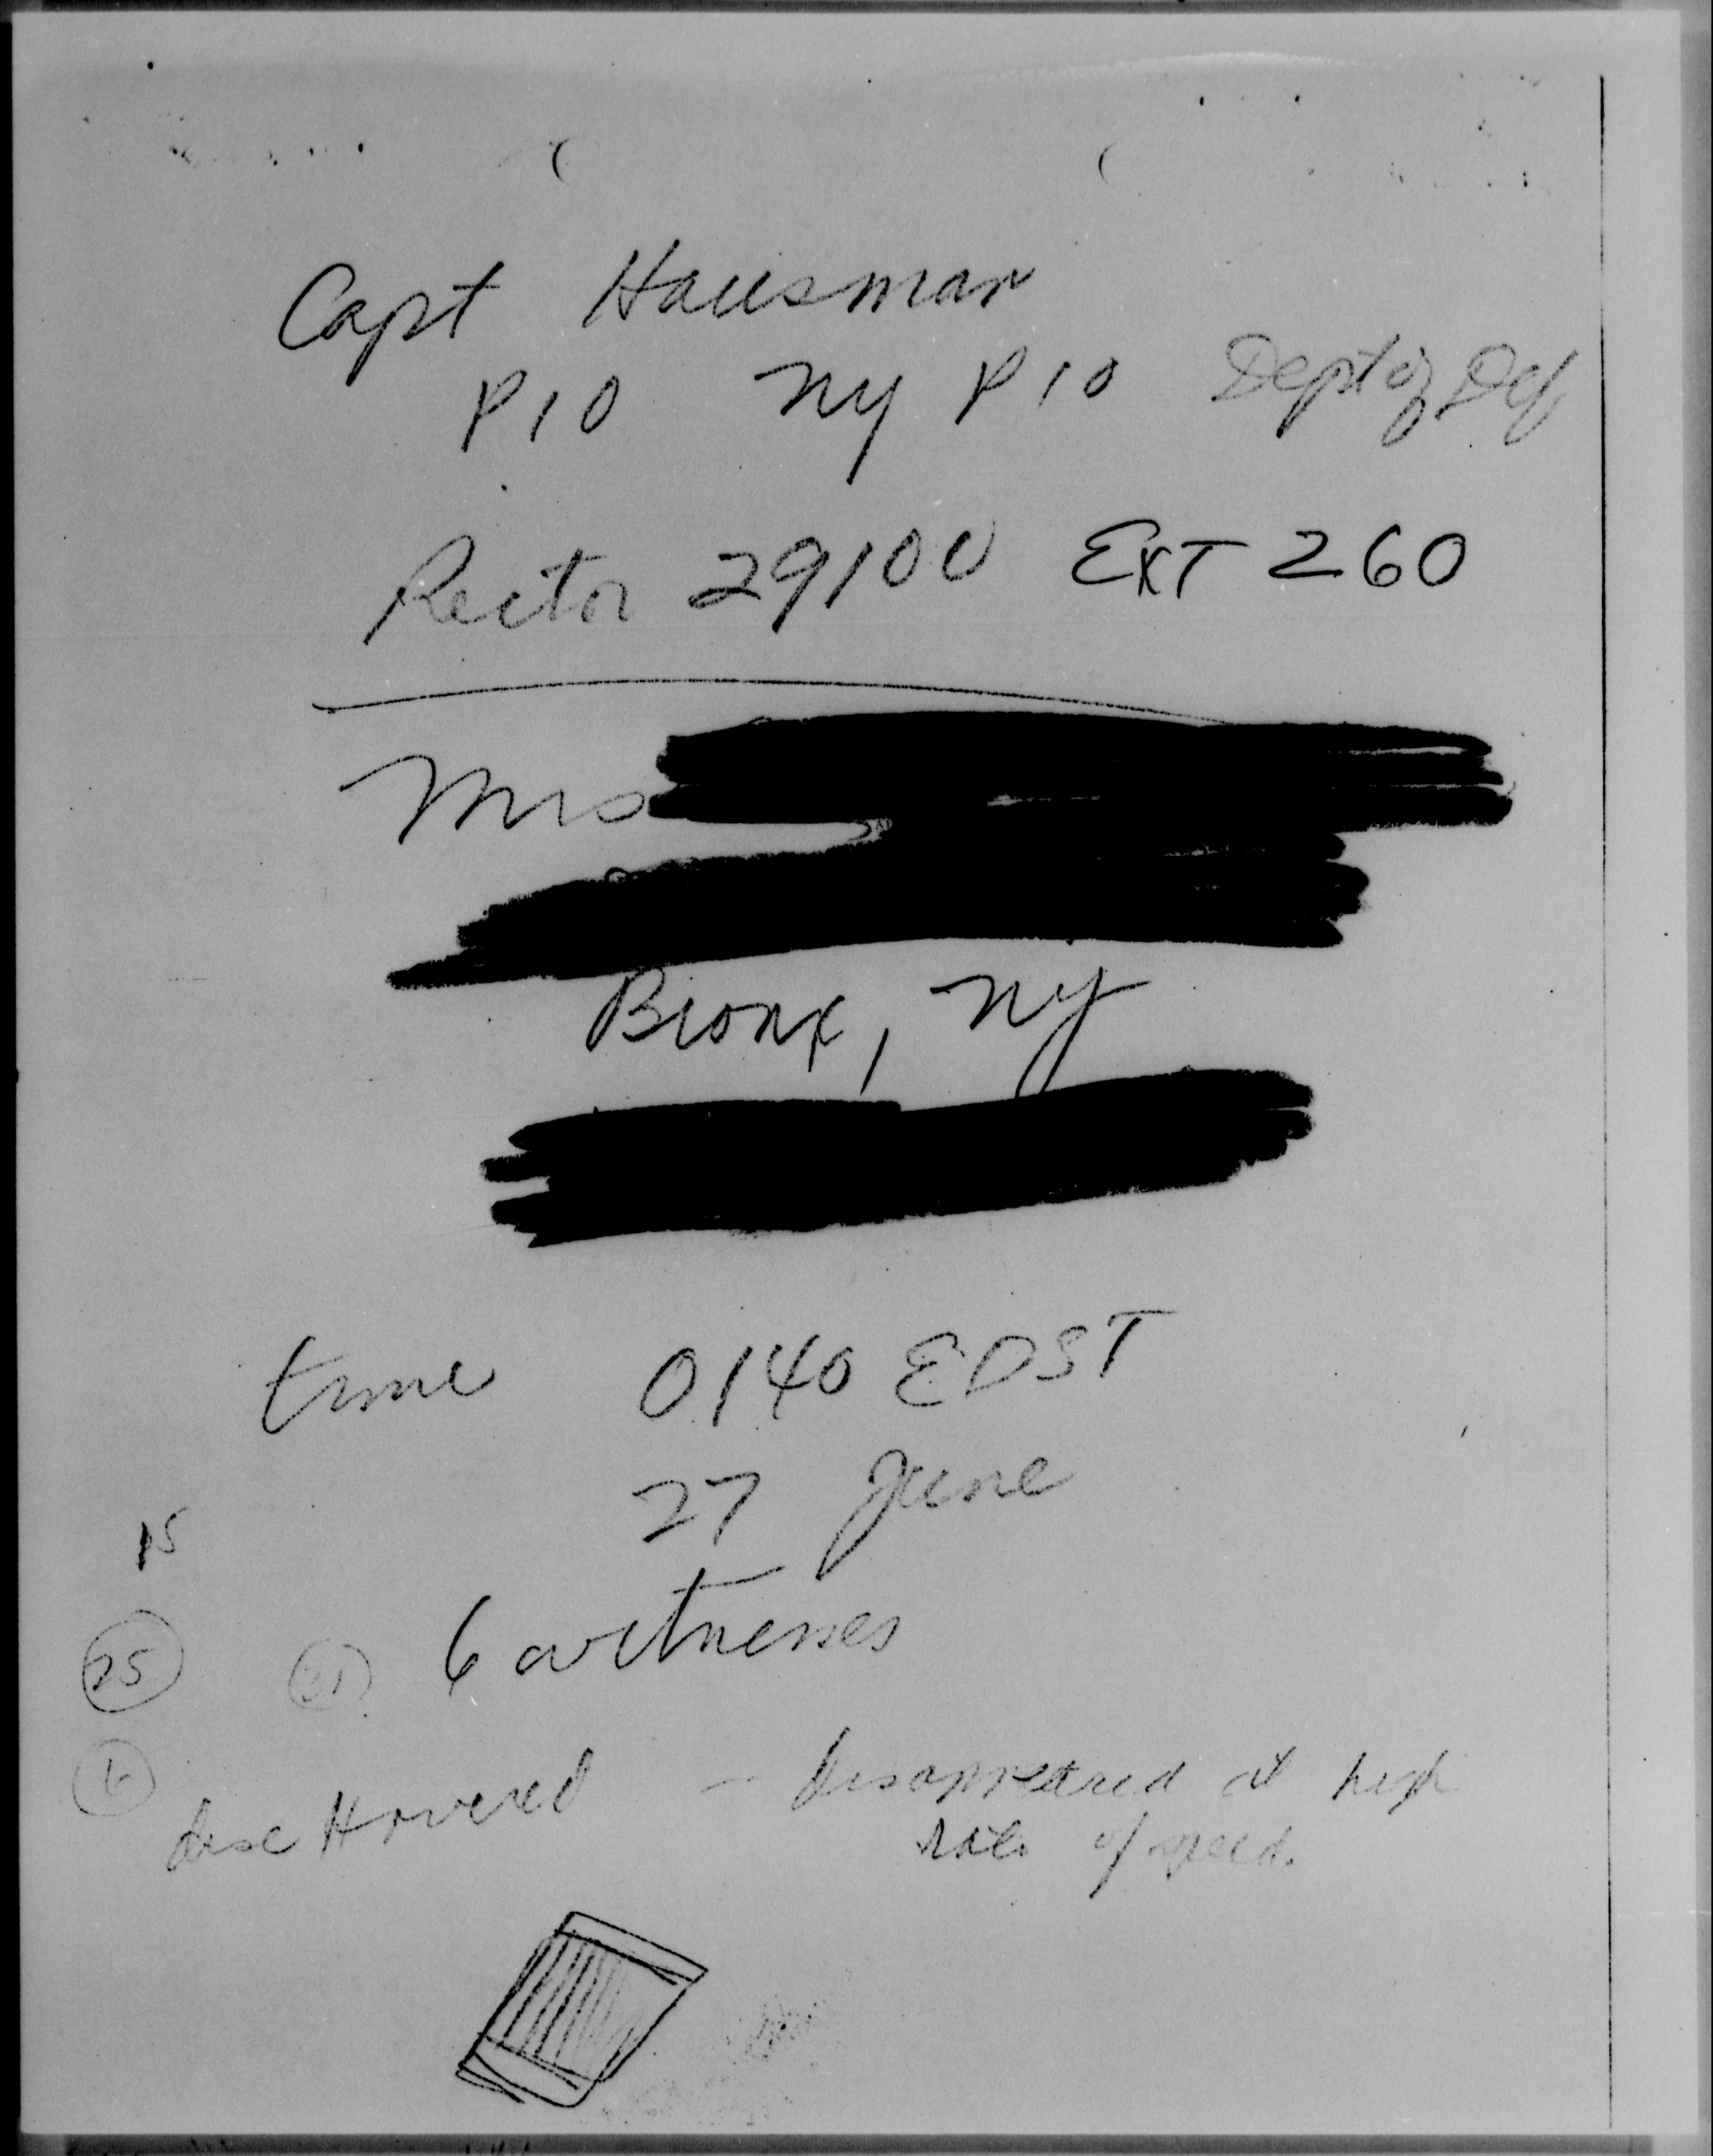 Capt Hausman
PIO NY PIO Dept of Def
Rector 29100 EXT 260
Mrs
Bronx, NY
time 0140 EDST
27 June
15
25 6 witnesses
6
disc Hovered - disappeared at high
rate of speed.